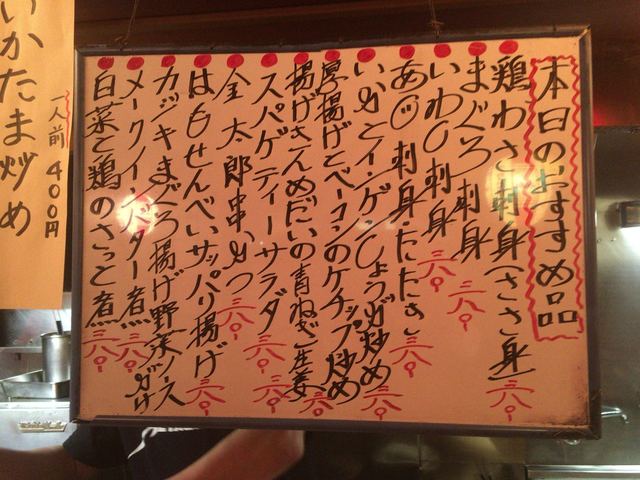 本日のおすすめ品
鶏わさ刺身(ささ身)三八〇
まぐろ刺身 三八〇
いわし刺身 三八〇
あじ刺身・たたき 三八〇
いかとインゲンしょうが炒め 三八〇
厚揚げとベーコンのケチャップ炒め
揚げさんめだいの青ねぎ生姜 三八〇
スパゲティーサラダ 三八〇
金太郎串 三八〇
はもせんべいサッパリ揚げ 三八〇
カジキまぐろ揚げ野菜ソースがけ
メークインバター煮 三八〇
白菜と鶏のさっと煮 三八〇
いかたま炒め
一人前 400円